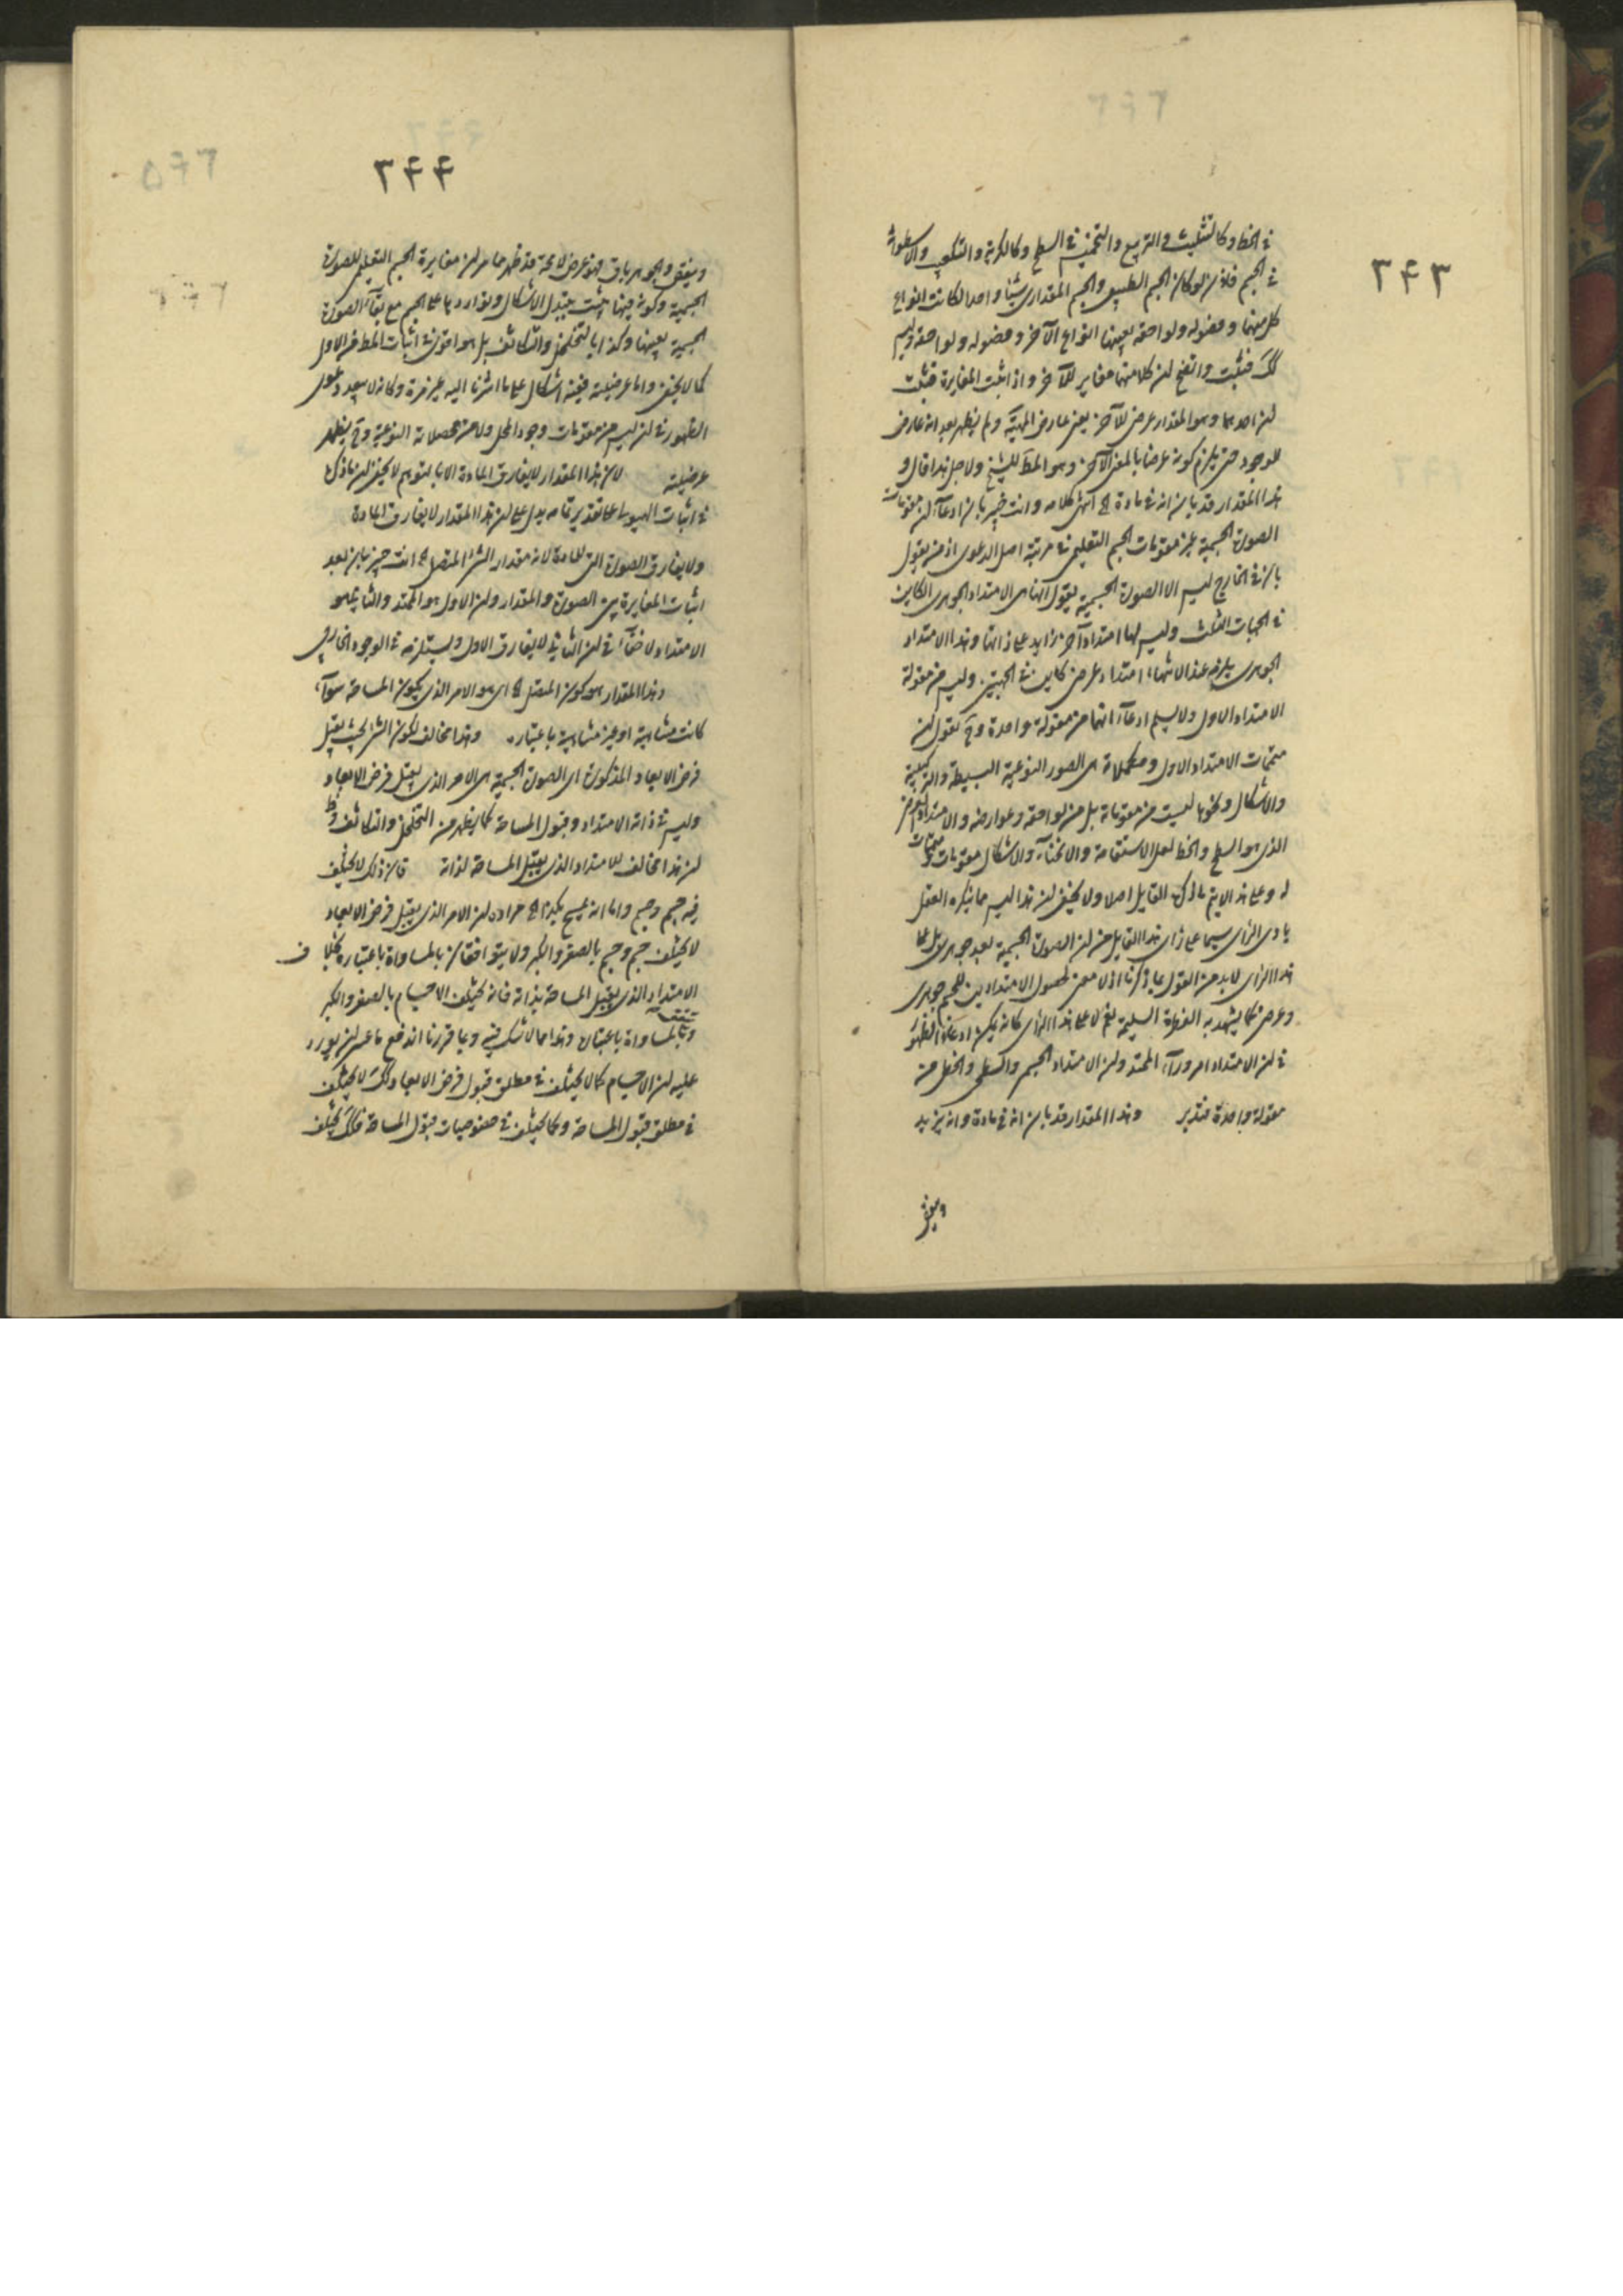 ٣۴٣
في الخط وكالتثليث والتربيع والتخميس في السطح وكالكرية والتكعيب والاسطوانة
في الجسم فاذن لو كان الجسم الطبيعي والجسم المقداري شيئا واحدا لكانت انواع
كل منهما وفصوله ولواحقه بعينها انواع الآخر وفصوله ولواحقه وليس
كك فثبت واتضح ان كلا منهما مغاير للآخر واذ اثبت المغايرة فثبت
ان احدهما وهو المقدار عرض للآخر يعني عارض المهية ولم يظهر بعد انه عارض
للوجود حتى يلزم كونه عرضا بالمعنى الآخر وهو المط للشيخ ولاجل هذا قال و
هذا المقدار قد بان انه في مادة الخ انتهى كلامه وانت خبير بان ادعاء ان مقومات
الصورة الجسمية غير مقومات الجسم التعليمي في مرتبة اصل الدعوى اذ من يقول
بان في الخارج ليس الا الصورة الجسمية يقول انها هي الامتداد الجوهري الكاين
في الجهات الثلث وليس لها امتداد آخر زايد على ذاتها وهذا الامتداد
الجوهري يلزمه عند الانتهاء امتداد عرضي كاين في الجهتين وليس من مقولة
الامتداد الاول ولا يسلم ادعاء انهما من مقولة واحدة وح نقول ان
متممات الامتداد الاول ومكملاته هي الصور النوعية البسيطة والتركيبية
والاشكال ونحوها ليست من مقوماته بل من لواحقه وعوارضه والامتداد العرضي
الذي هو السطح والخط لعل الاستقامة والانحناء والاشكال مقومات ومتممات
له وعلى هذا لا يتم ما ذكره القايل اصلا ولا يخفى ان هذا ليس مما ينكره العقل
بادي الرأي سيما على رأي هذا القايل من ان الصورة الجسمية بعد جوهري بل على
هذا الرأي لا بد من القول بما ذكرنا اذ لا معنى لحصول الامتدادين للجسم جوهري
وعرضي كما يشهد به الفطرة السليمة نعم لا على هذا الرأي كانه يمكن ادعاء الظهور
في ان الامتداد امر وراء الممتد وان الامتداد الجسمي والسطحي والخطي من
مقولة واحدة فتدبر وهذا المقدار قد بان انه في مادة وانه يزيد
وينقص
٣۴۴
وينقص والجوهر باق فهو عرض لا محة قد ظهر مما مر ان مغايرة الجسم التعليمي للصورة
الجسمية وكونه فيها يثبت بتبدل الاشكال وتواردها على الجسم مع بقاء الصورة
الجسمية بعينها وكذا بالتخلخل والتكاثف بل هو اقوى في اثبات المط من الاول
كما لا يخفى واما عرضيته ففيه اشكال على ما اشرنا اليه غير مرة وكانه لا يبعد دعوى
الظهور في انه ليس من مقومات وجود المحل ولا من محصلاته النوعية وح يظهر
عرضيته لان هذا المقدار لا يفارق المادة الا بالتوهم لا يخفى ان ما ذكره
في اثبات الهيولى على تقدير تمامه يدل على ان هذا المقدار لا يفارق المادة
ولا يفارق الصورة التي للمادة لانه مقدار الشئ المتصل الخ انت خبير بان بعد
اثبات المغايرة بين الصورة والمقدار وان الاول هو الممتد والثاني هو
الامتداد لا خفاء في ان الثاني لا يفارق الاول ويستلزمه في الوجود الخارجي
وهذا المقدار هو كون المتصل الخ اي هو الامر الذي يكون المساحة سواء
كانت متناهية او غير متناهية باعتباره وهذا مخالف لكون الشئ بحيث يقبل
فرض الابعاد المذكورة اي الصورة الجسمية هي الامر الذي يقبل فرض الابعاد
وليس في ذاته الامتداد وقبول المساحة كما يظهر من التخلخل والتكاثف وظ
ان هذا مخالف للامتداد الذي يقبل المساحة لذاته فان ذلك لا يختلف
فيه جسم وجسم واما انه يمسح بكذا الخ مراده ان الامر الذي يقبل فرض الابعاد
لا يختلف جسم وجسم بالصغر والكبر ولا يتوافقان بالمساواة باعتباره بخلاف
الامتداد الذي يقبل المساحة بذاته فانه يختلف الاجسام بالصغر والكبر
ويتفق بالمساواة باعتباره وهذا مما لا شك فيه وبما قررنا اندفع ما عسى ان يورد
عليه ان الاجسام كما لا يختلف في مطلق قبول فرض الابعاد كك لا يختلف
في مطلق قبول المساحة وكما يختلف في خصوصيات قبول المساحة فكك يختلف